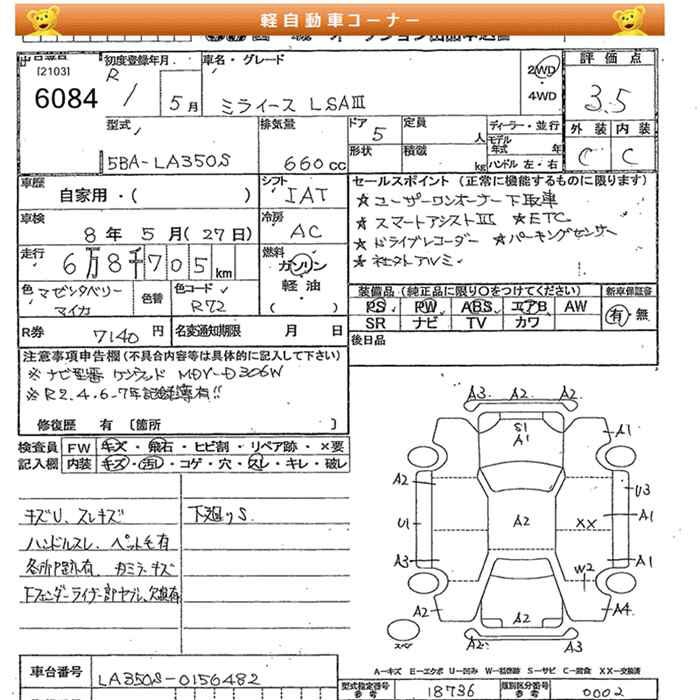 軽自動車コーナー
[2103]
6084
初度登録年月
R 1 5月
車名・グレード
ミライース LSAⅢ
2WD
・
4WD
評価点
3.5
外装 内装
C C
型式
5BA-LA350S
排気量
660cc
ドア
5
定員
人
形状
積載
kg
ディーラー・並行
モデル年式 年
ハンドル 左・右
車歴
自家用・( )
シフト
IAT
車検
8年5月(27日)
冷房
AC
走行
6万8千705km
燃料
ガソリン
軽油
( )
色
マゼンタベリー
マイカ
色替
色コード
R72
R券
7140円
名変通知期限 月 日
セールスポイント(正常に機能するものに限ります)
☆ユーザーワンオーナー下取車
☆スマートアシストⅢ ☆ETC
☆ドライブレコーダー ☆パーキングセンサー
☆社外アルミ
装備品(純正品に限り○をつけてください)
新車保証書
PS PW ABS エアB AW
SR ナビ TV カワ
有・無
後日品
注意事項申告欄(不具合内容等は具体的に記入して下さい)
※ナビ型番 ケンウッド MDV-D306W
※R2.4.6-7年記録簿有!!
修復歴 有 〔箇所 〕
検査員
記入欄
FW キズ・飛石・ヒビ割・リペア跡・×要
内装 キズ・汚レ・コゲ・穴・スレ・キレ・破レ
キズU、スレキズ
下廻りS
ハンドルスレ、ペット毛有
各所凹跡有、カミラーキズ
Fフェンダーライナー部ヤブレ、欠損有
A3 A2 A2
S1
A1
A1
A2
U3
A1
U1
A2
XX
A3
A1
W2
A2
A2
A4
A2 A3
スペア
A-キズ E-エクボ U-凹み W-補修跡 S-サビ C-腐食 XX-交換済
車台番号
LA350S-0156482
型式指定番号
参考
18736
類別区分番号
参考
0002